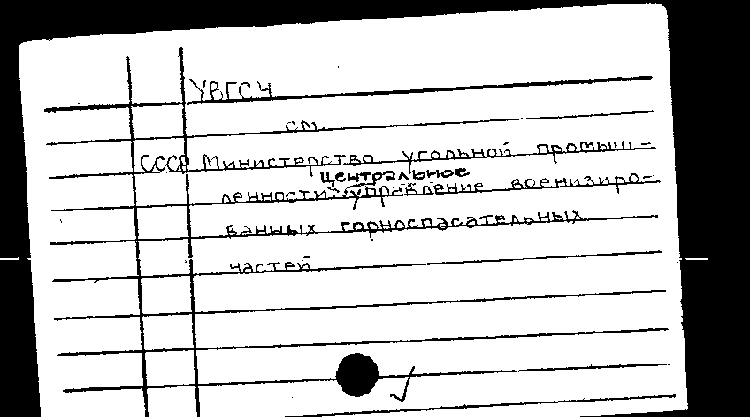 УВГСЧ
см.
СССР Министерство угольной промыш-
Центральное
ленности. управление военизиро-
ванных горноспасательных
частей.